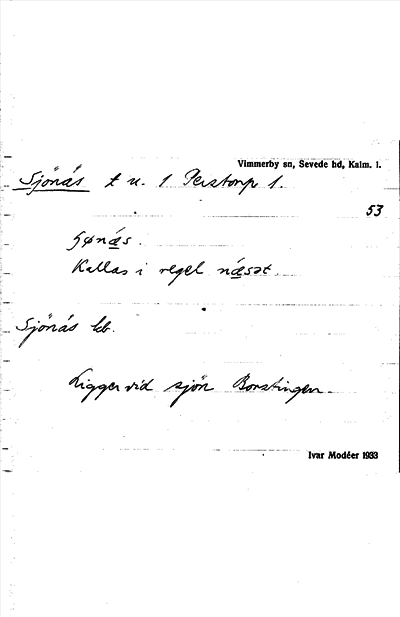 Vimmerby sn, Sevede hd, Kalm. l.
Sjönäs t u. 1 Perstorp 1.
53
ʃønæ̀s.
Kallas i regel næsət.
Sjönäs kb.
Ligger vid sjön Borstingen.
Ivar Modéer 1933